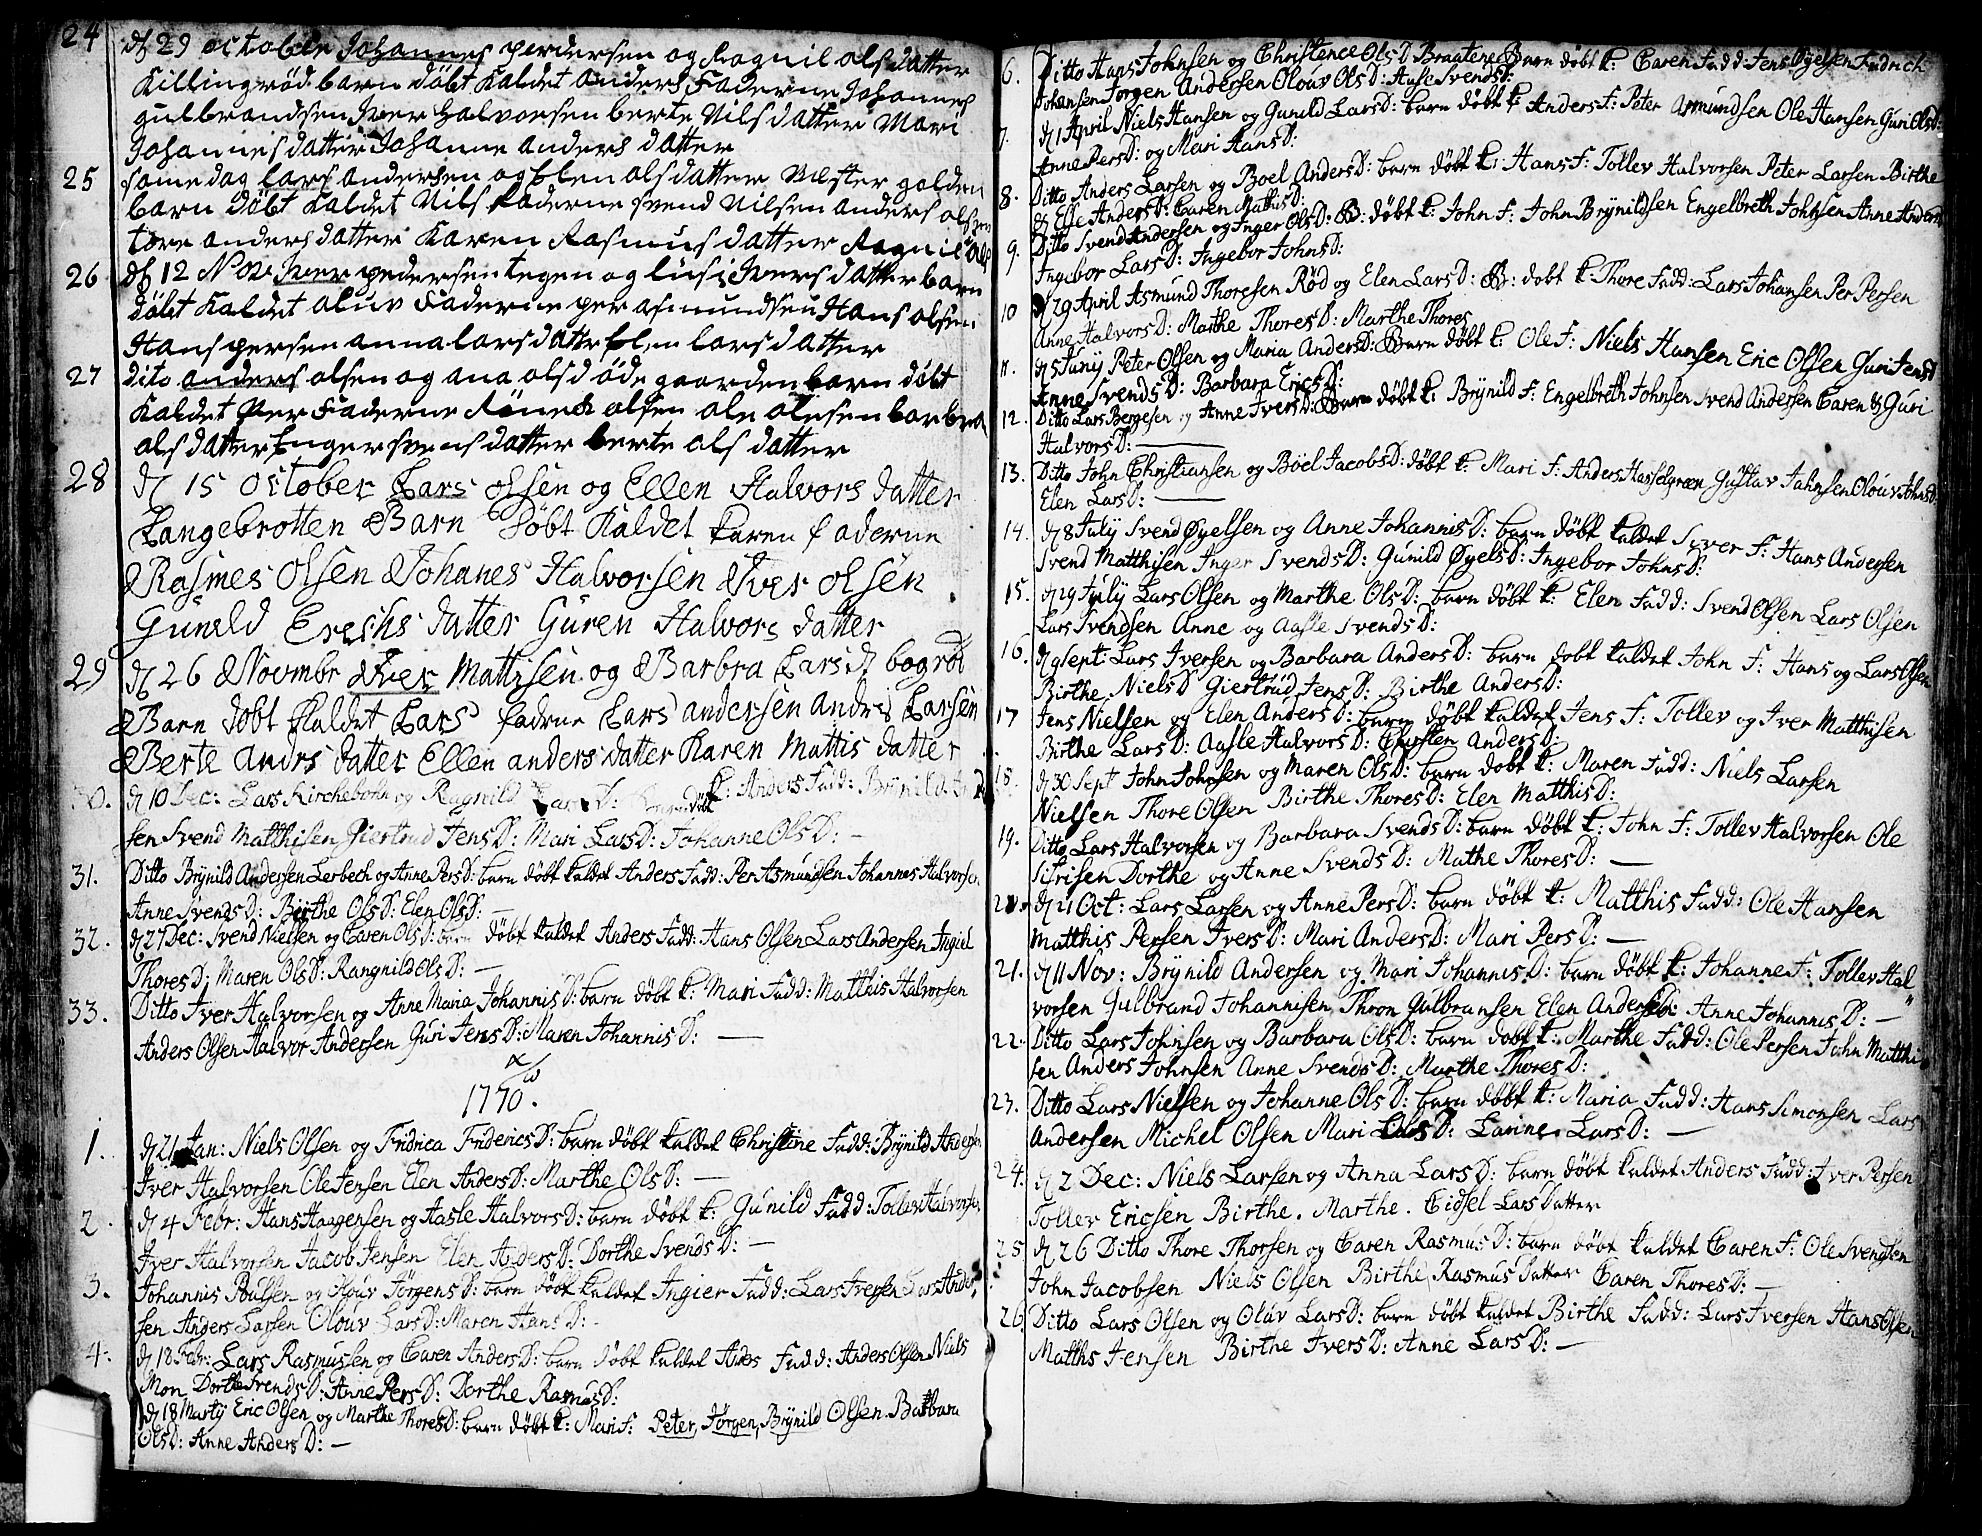 24 dħ 29 octobern Johannes perdersen og Ragnil olsdatter
Killingrød barn døbt Kaldet anders Faderne Johannes
gulbrandsen Jver halvorsen berte Nilsdatter Mari
Johannesdatter Johanne anders datter
25 samedag lars andersen og Elen olsdatter Wester golden
barn døbt Kaldet Nils Faderne svend Nilsen anders olsen
tore andersdatter Karen Rasmusdatter Ragnil ols
26 dħ 12 Nov Jver pedersen tegen og lusi Jversdatter barn
døbt Kaldet oluv Faderne per asmundsen Hans olsen
Hans persen anna larsdatter Elen larsdatter
27 dito anders olsen og ana olsd øde gaarden barn døbt
Kaldet Per Faderne olsen ole olesen barbra
olsdatter Enger svensdatter berte olsdatter
28 dħ 15 October Lars olsen og Ellen Halvors datter
Langebrotten Barn Døbt Kaldet Karen faderne
Rasmes Olsen Johanes Halvorsen Iver olsen
Guneld Erechs datter Guren Halvors datter
29 dħ 26 Novmbr Iver Mattisen og Barbra Larsdħ bogrød
Barn døbt Kaldet Lars fadrne Lars andersen andris Larsen
Berte andrs datter Ellen anders datter Karen Mattis datter
30. dħ 10 Dec: Lars Kircheboen og Ragnild LarsD: døbt K: Anders Fadd: Brynild Ander
sen Svend Matthisen Giertrud JensD: Mari LarsD: Johanne OlsD: —
31. Ditto Brynild Andersen Lerbech og Anne PersD: barn døbt kaldet Anders Fadd: Per Asmundsen Johannes Halvorsen
Anne SvendsD: Birthe OlsD: Elen OlsD: —
32. dħ 27 Dec: Svend Nielsen og Caren OlsD: barn døbt kaldet Anders Fadd: Hans Olsen Lars Andersen Ingiel
ThoresD: Maren OlsD: Rangnild OlsD: —
33. Ditto Iver Halvorsen og Anne Maria JohannisD: barn døbt K: Mari Fadd: Matthis Halvorsen
Anders Olsen Halvor Andersen Guri JensD: Maren JohannisD: —
1770.
1. dħ 21 Jan: Niels Olsen og Fridrica FridericsD: barn døbt kaldet Christine Fadd: Brynild Andersen
Iver Halvorsen Ole Jensen Elen AndersD: Marthe OlsD: —
2. dħ 4 Febr: Hans Haagensen og Aasle HalvorsD: barn døbt K: Gunild Fadd: Tollev Halvorsen
Iver Halvorsen Jacob Jensen Elen AndersD: Dorthe SvendsD: —
3. Johannis Poulsen og Olouv JørgensD: barn døbt kaldet Ingier Fadd: Lars Iversen Lars Ander,
sen Anders Larsen Olouv LarsD: Maren HansD: -
4. dħ 18 Febr: Lars Rasmussen og Caren AndersD: barn døbt kaldet Anders Fadd: Anders Olsen Niels
Mon Dorthe SvendsD: Anne PersD: Dorthe RasmusD:
dħ 18 Marty Eric Olsen og Marthe ThoresD: barn døbt K: Mari F: Peter, Jørgen, Brynild Olsen Barbara
OlsD: Anne AndersD: —
6. Ditto Hans Johnsen og Christence OlsD: Braatene Barn døbt K: Caren Fadd: Jens Øyelsen Fridrich
Johansen Jørgen Andersen Olouv OlsD: Aase SvendsD:
7. dħ 1 April Niels Hansen og Gunild LarsD: barn døbt K: Anders F: Peter Asmundsen Ole Hansen Guri OlsD:
Anne PersD: og Mari HansD:
8. Ditto Anders Larsen og Boel AndersD: barn døbt K: Hans F: Tollev Halvorsen Peter Larsen Birthe
og Else AndersD: Caren MathisD:
9. Ditto Svend Andersen og Inger OlsD: B: døbt K: John F: John Brynildsen Engelbreth Johnsen Anne Anders
Ingebor LarsD: Ingebor JohnsD:
10 dħ 29 April Asmund Thoresen Rød og Elen LarsD: B: døbt K: Thore Fadd: Lars Johansen Per Persen
Anne HalvorsD: Marthe ThoresD: Marthe Thores
11. dħ 5 Juny Peter Olsen og Maria AndersD: Barn døbt K: Ole F: Niels Hansen Eric Olsen Guri JensD
Anne SvendsD: Barbara EricsD:
12. Ditto Lars Bergesen og Anne IversD: Barn døbt K: Brynild F: Engelbreth Johnsen Svend Andersen Caren og Guri
HalvorsD: —
13. Ditto John Christiansen og Boel JacobsD: døbt K: Mari F: Anders Hasselgreen Gustav Jahnsen Olouv JohnsD:
Elen LarsD: —
14. dħ 8 July Svend Øyelsen og Anne JohannisD: barn døbt kaldet Siver F: Hans Andersen
Svend Matthisen Inger SvendsD: Gunild ØyelsD: Ingebor JohnsD:
15. dħ 29 July Lars Olsen og Marthe OlsD: barn døbt K: Elen Fadd: Svend Olsen Lars Olsen
Lars Svendsen Anne og Aasle SvendsD:
16. dħ 9 Sept: Lars Iversen og Barbara AndersD: barn døbt kaldet John F: Hans og Lars Olsen
Birthe NielsD Giertrud JensD: Birthe AndersD:
17 Jens Nielsen og Elen AndersD: barn døbt kaldet Jens F: Tollev og Iver Matthisen
Birthe LarsD: Aasle HalvorsD: Chirsten AndersD:
18. dħ 30 Sept John Johnsen og Maren OlsD: barn døbt K: Maren Fadd: Niels Larsen
Nielsen Thore Olsen Birthe ThoresD: Elen MatthisD:
19. Ditto Lars Halvorsen og Barbara SvendsD: barn døbt K: John F: Tollev Halvorsen Ole
Sifrisen Dorthe og Anne SvendsD: Mathe ThoresD: —
20. dħ 21 Oct: Lars Larsen og Anne PersD: barn døbt K: Matthis Fadd: Ole Hansen
Matthis Persen IversD: Mari AndersD: Mari PersD: —
21. dħ 11 Nov: Brynild Andersen og Mari JohannisD: barn døbt K: Johanne F: Tollev Hal
vorsen Gulbrand Johannisen Thron Gulbransen Elen AndersD: Anne JohannisD: —
22. Ditto Lars Johnsen og Barbara OlsD: barn døbt K: Marthe Fadd: Ole Persen John Matthi
sen Anders Johnsen Anne SvendsD: Marthe ThoresD:
23. Ditto Lars Nielsen og Johanne OlsD: barn døbt K: Maria Fadd: Hans Simonsen Lars
Andersen Michel Olsen Mari LarsD: Larine LarsD: —
24. dħ 2 Dec: Niels Larsen og Anna LarsD: barn døbt kaldet Anders Fadd: Iver Persen
Tollev Ericsen Birthe. Marthe. Cidsel Lars Datter
25 dħ 26 Ditto Thore Thorsen og Caren RasmusD: barn døbt kaldet Caren F: Ole Svendsen
John Jacobsen Niels Olsen Birthe Rasmus Datter Caren ThoresD: —
26 Ditto Lars Olsen og Oluv LarsD: barn døbt kaldet Birthe Fadd: Lars Iversen Hans Olsen
Matths Jensen Birthe IversD: Anne LarsD: —